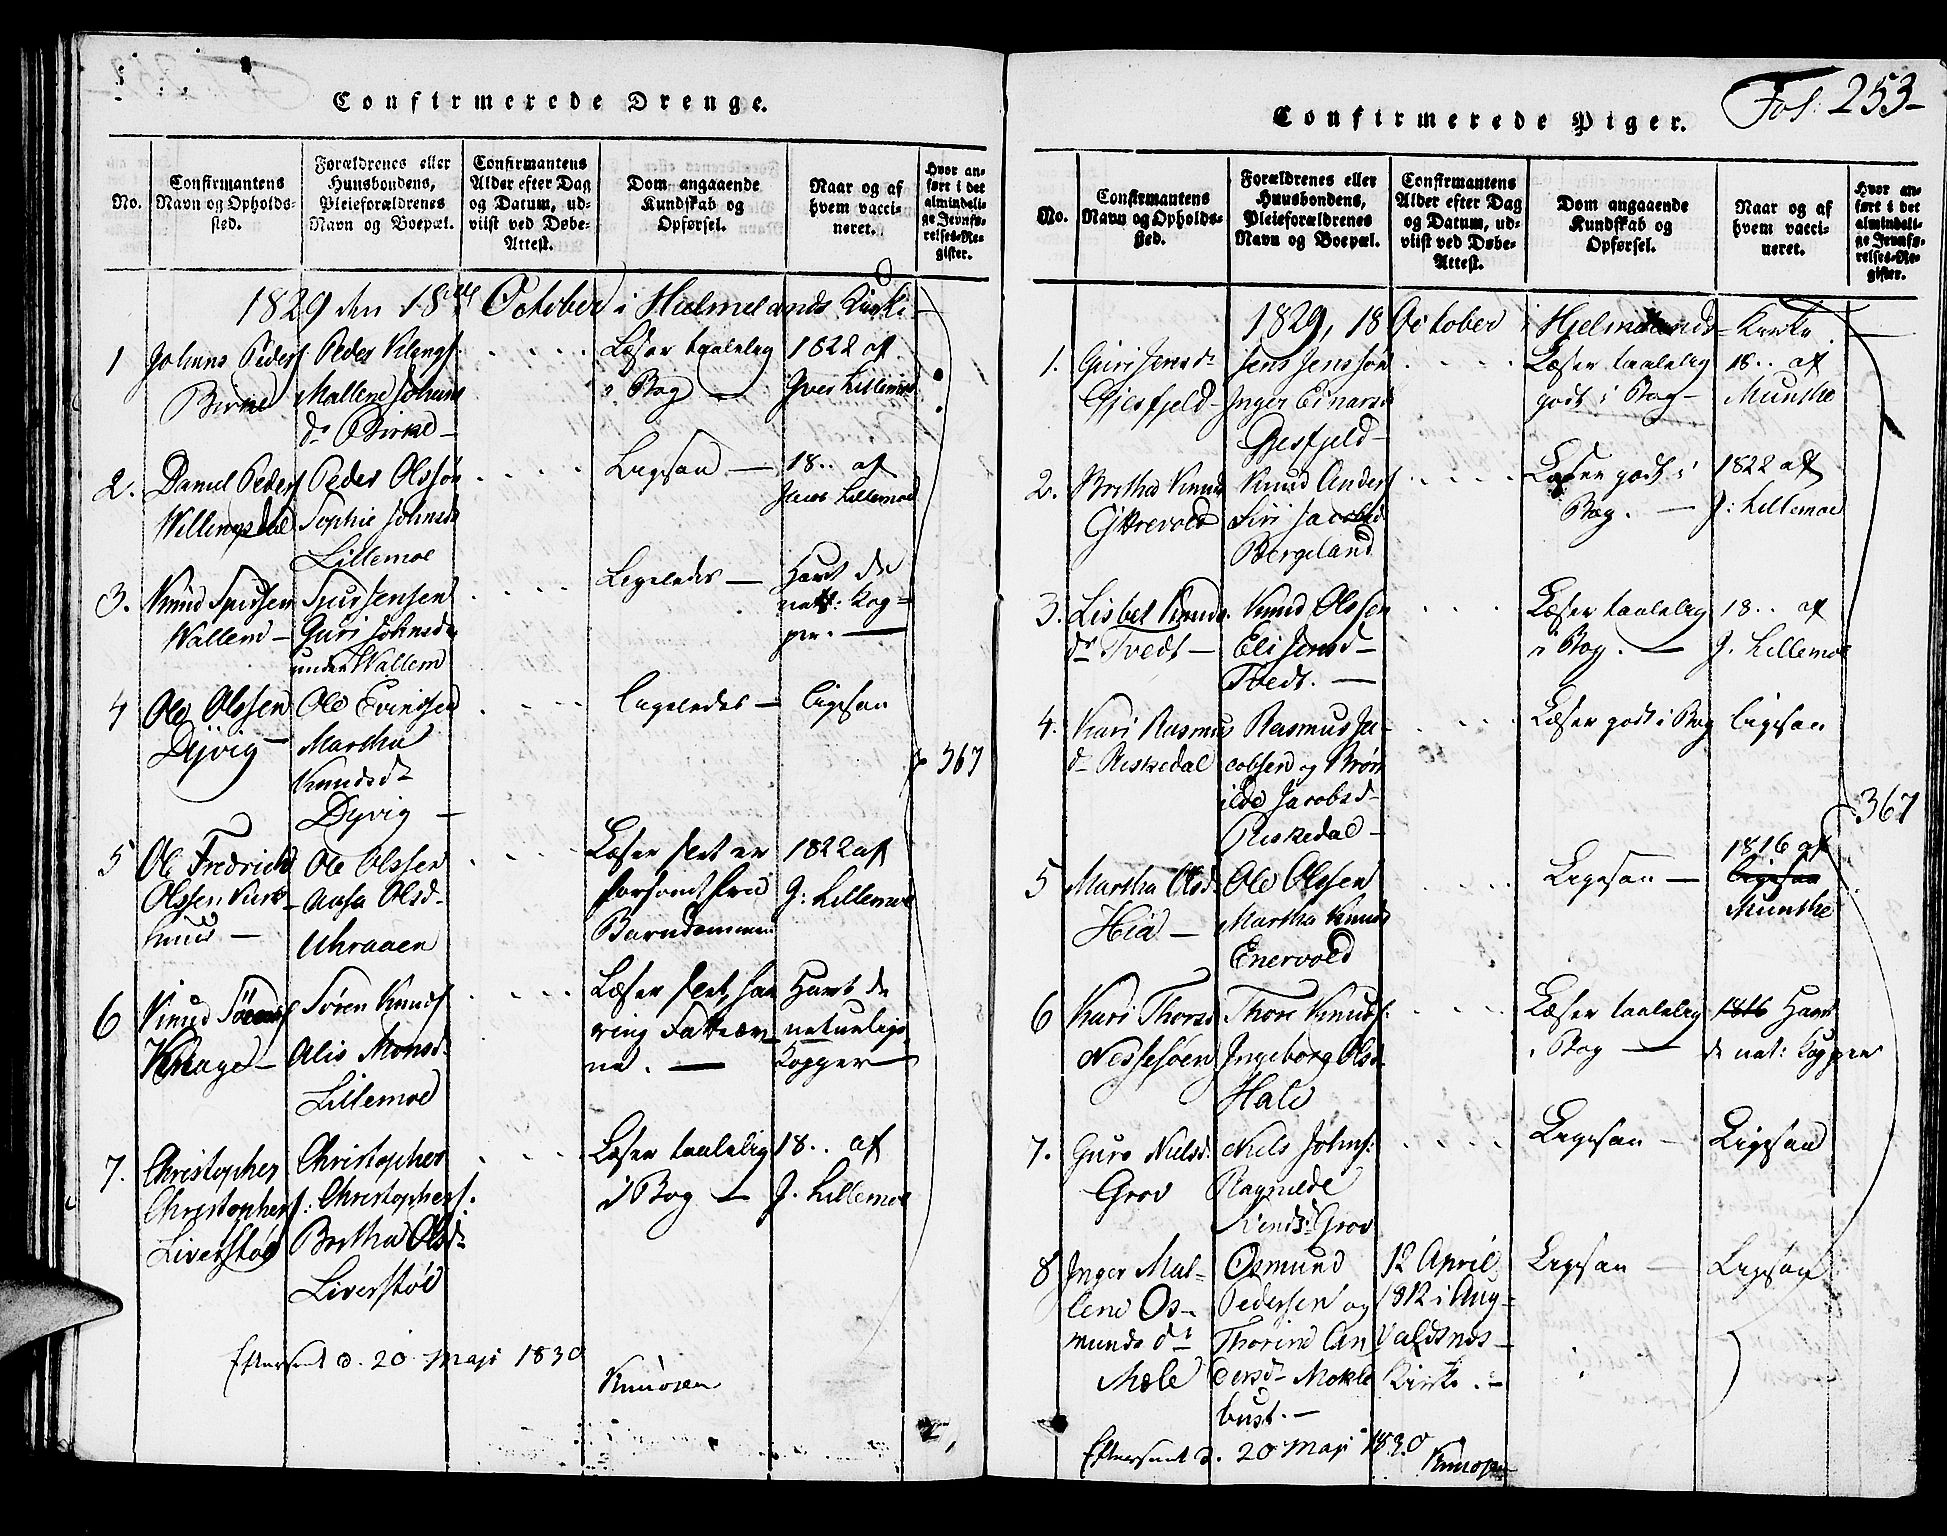 Confirmerede Drenge.
No.
Confirmantens
Navn og Opholds-
sted.
Forældrenes eller
Huusbondens,
Pleieforældrenes
Navn og Boepæl.
Confirmantens
Alder efter Dag
og Datum, ud-
viist ved Døbe-
Attest.
Dom angaaende
Kundskab og
Opførsel.
Naar og af
hvem vacci-
neret.
Hvor an-
ført i det
almindeli-
ge Jevnfø-
relses-Re-
gister.
1829 den 18de October i Hielmelands Kirke
1
Johans Peders
Birke
Peder
Mallene Johans
dr Birke
Læser taalelig
i Bog
1822 af
Iver Lillemoe
2.
Daniel Peders
Willemsdal
Peder Olssøn
Sophie Johnsd
Lillemoe
Ligesaa
18.. af
Jacob Lillemoe
3.
Knud Sjursen
Wallem
Sjur Jensen
Guri Johnsd
under Wallem
Ligeledes
Havt de
nat: Kop-
per.
4
Ole Olssen
Dyvig
Ole Evindsen
Martha
Knudsdr
Dyvig
Ligeledes
Ligesaa
367
5
Ole Fredrich
Olssen
Ole Olssen
Aasa Olsd
Uhraaen
Læser slet er
forsømt fra
Barndommen
1822 af
J: Lillemoe
6
Knud Sörens
Knage
Søren Knuds
Alis Monsd.
Lillemoe
Læser slet, faa
ring Fatteæv-
ne.
Havt de
naturlige
Kopper
7.
Christopher
Christophers:
Liverstøe
Christopher
Christophers.
Bertha Olsdr
Liverstøe
Læser taalelig
i Bog
18.. af
J. Lillemoe
Efterseet d. 20 Maji 1830
Knudsen
Confirmerede Piger.
Fol: 253
No.
Confirmantens
Navn og Opholds-
sted.
Forældrenes eller
Huusbondens,
Pleieforældrenes
Navn og Boepæl.
Confirmantens
Alder efter Dag
og Datum, ud-
viist ved Døbe-
Attest.
Dom angaaende
Kundskab og
Opførsel.
Naar og af
hvem vacci-
neret.
Hvor an-
ført i det
almindeli-
ge Jevnfø-
relses-Re-
gister.
1829, 18 October i Hjelmelands Kirke
1.
Guri Jensdr
Gjesfjeld
Jens Jenssøn
Inger Einarsd
Gjesfjeld
Læser taalelig
godt i Bog
18.. af
Munthe
2.
Bertha Knuds
Knud Anders
Siri Jacobsd
Bergeland
Læser godt i
Bog.
1822 af
J: Lillemoe
3.
Lisbet Knuds
dr Tvedt
Knud Olssen
Eli Jensd
Tvedt.
Læser taalelig
i Bog.
18.. af
J. Lillemoe
4.
Kari Rasmus
dr Riskedal
Rasmus Ja-
cobsen og Brøn
ilde Jacobsd
Riskedal
Læser godt i Bog
Ligesaa
367
5
Martha Olsd.
Hia
Ole Olssen
Martha Knuds
Enervold
Ligesaa
1816 af
Ligesaa
Munthe
6
Kari Thorsd
Nessesøen
Thore Knuds:
Ingeborg Olsd
Hale
Læser taalelig
i Bog
1816 Havt
de nat: Kopper
7.
Guro Nielsd.
Grov
Niels Johns:
Ragnilde
Grov
Ligesaa
Ligesaa
8
Inger Mal-
lene Os-
munds dr
Mæle
Osmund
Pedersen og
Thorine An
dersdr Mokle
bust.
12 April
1812 i Aug-
valdsnes
Kirke.
Ligesaa
Ligesaa
Efterseet d. 20 Maji 1830
Knudsen